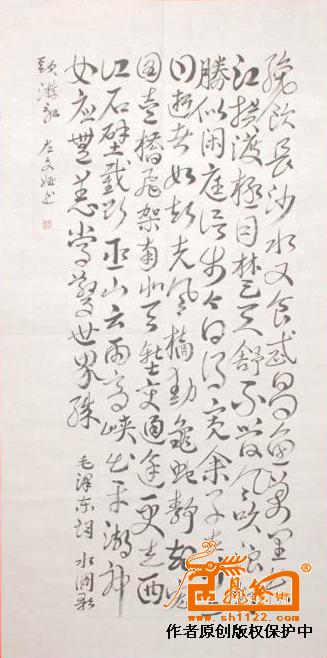 纔饮長沙水又食武昌魚萬里长
江横渡極目楚天舒不管风吹浪
勝似闲庭信步今日得宽余子在
曰逝者如斯夫风樯動龜蛇静起宏
图壹橋飛架南北天堑变通途更立西
江石壁截断巫山云雨高峡出平湖神
女应無恙當驚世界殊 毛泽东词 水调歌
头游泳 左文
www.sh1122.com
作者原创版权保护中